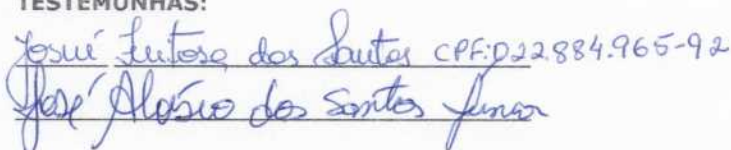 TESTEMUNHAS:
Josué Feitosa dos Santos CPF:022.884.965-92
José Aloísio dos Santos Junior